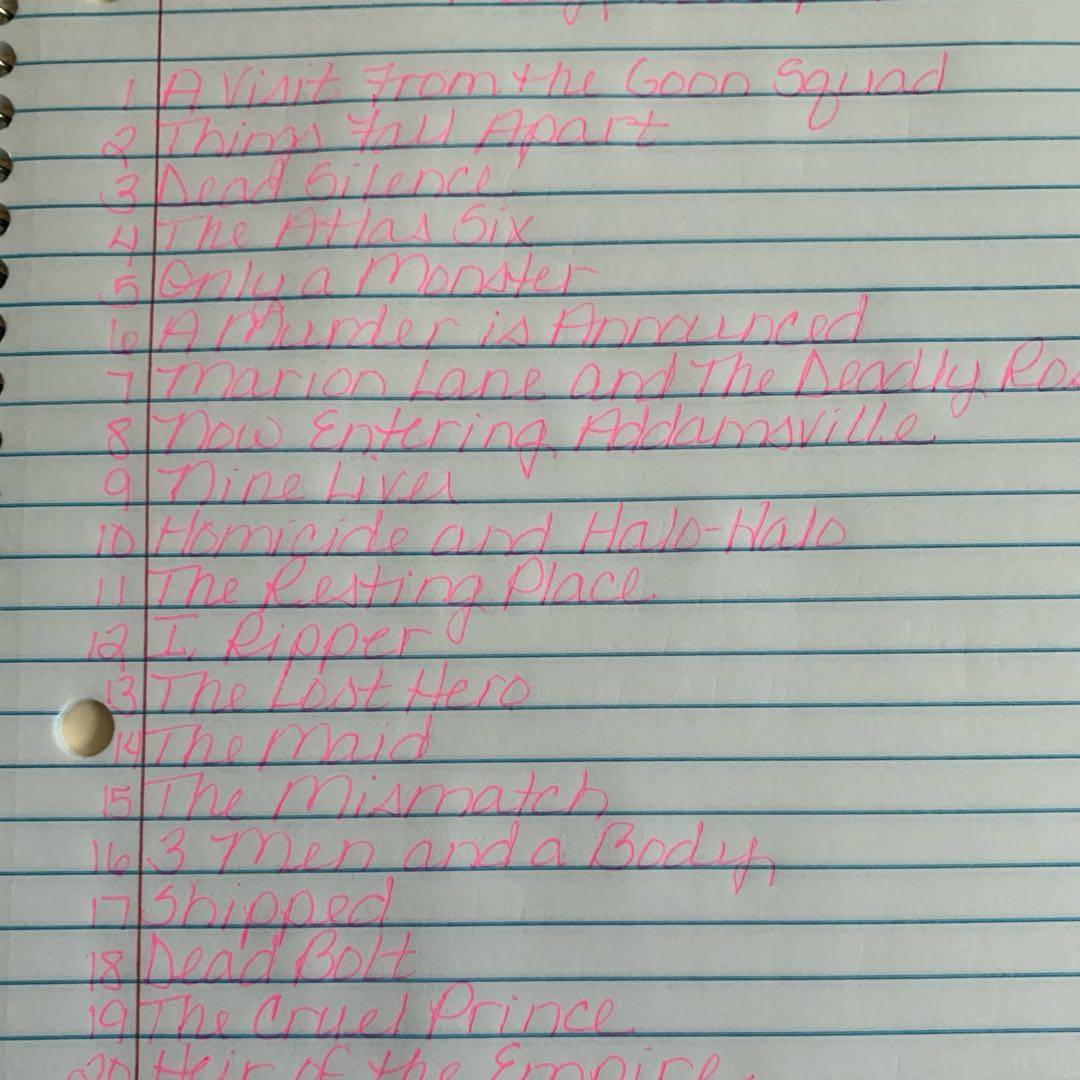 1 A Visit From the Goon Squad
2 Things Fall Apart
3 Dead Silence
4 The Atlas Six
5 Only a Monster
6 A Murder is Announced
7 Marion Lane and The Deadly
8 Now Entering Addamsville
9 Nine Lives
10 Homicide and Halo-Halo
11 The Resting Place
12 I, Ripper
13 The Lost Hero
14 The Maid
15 The Mismatch
16 3 Men and a Body
17 Shipped
18 Dead Bolt
19 The Cruel Prince
20 Heir of the Empire